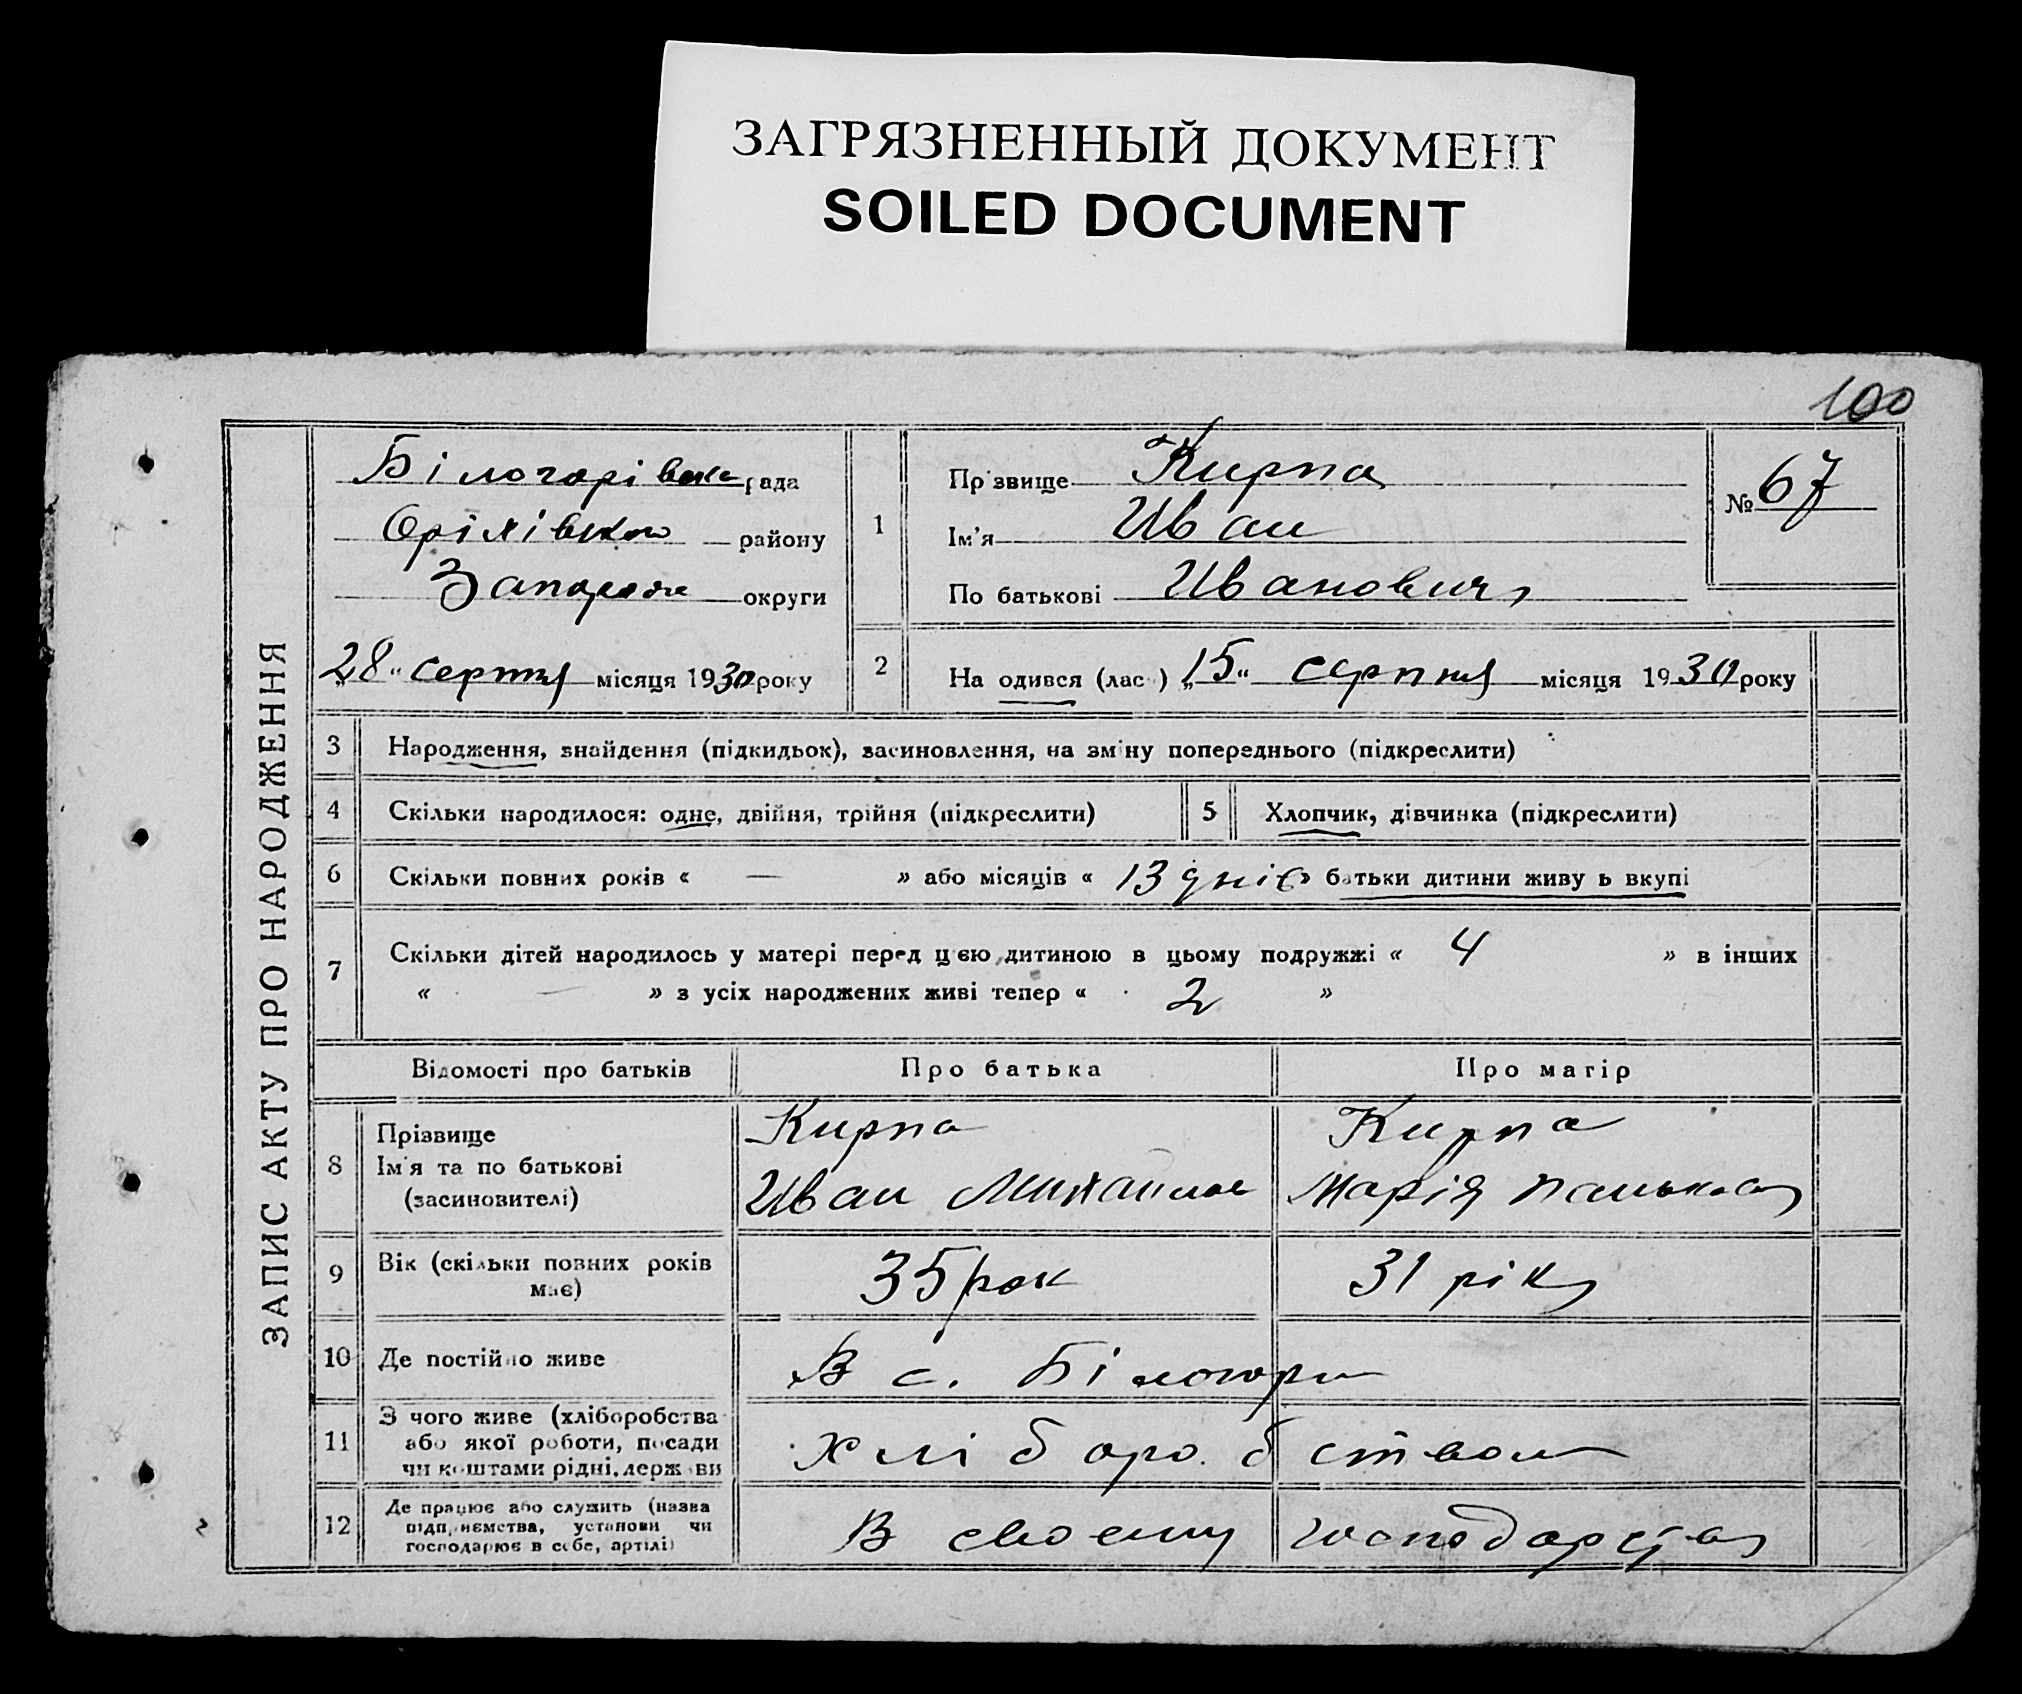 ЗАГРЯЗНЕННЫЙ ДОКУМЕНТ
SOILED DOCUMENT
100
ЗАПИС АКТУ ПРО НАРОДЖЕННЯ
Білогорівська рада
району
округи
„28“ серпня місяця 1930 року
1
Прізвище Кирпа
Ім'я Иван
По батькові Иванович
№ 67
2
На одився (лас ) „15“ серпня місяця 1930 року
3 Народження, знайдення (підкидьок), засиновлення, на зміну попереднього (підкреслити)
4 Скільки народилося: одне, двійня, трійня (підкреслити)
5 Хлопчик, дівчинка (підкреслити)
6 Скільки повних років « — » або місяців « 13 днів » батьки дитини живу ь вкупі
7 Скільки дітей народилось у матері перед цією дитиною в цьому подружжі « 4 » в інших
« — » з усіх народжених живі тепер « 2 »
Відомості про батьків Про батька Про матір
8 Прізвище
Ім'я та по батькові
(засиновителі)
Кирпа
Иван
Кирпа
Марія
9 Вік (скільки повних років
має)
35 рок
31 рік
10 Де постійно живе
В с. Білогори
11 З чого живе (хліборобства
або якої роботи, посади
чи коштами рідні, держави
хліборобством
12 Де працює або служить (назва
підприємства, установи чи
господарює в себе, артілі)
В своєму господарстві